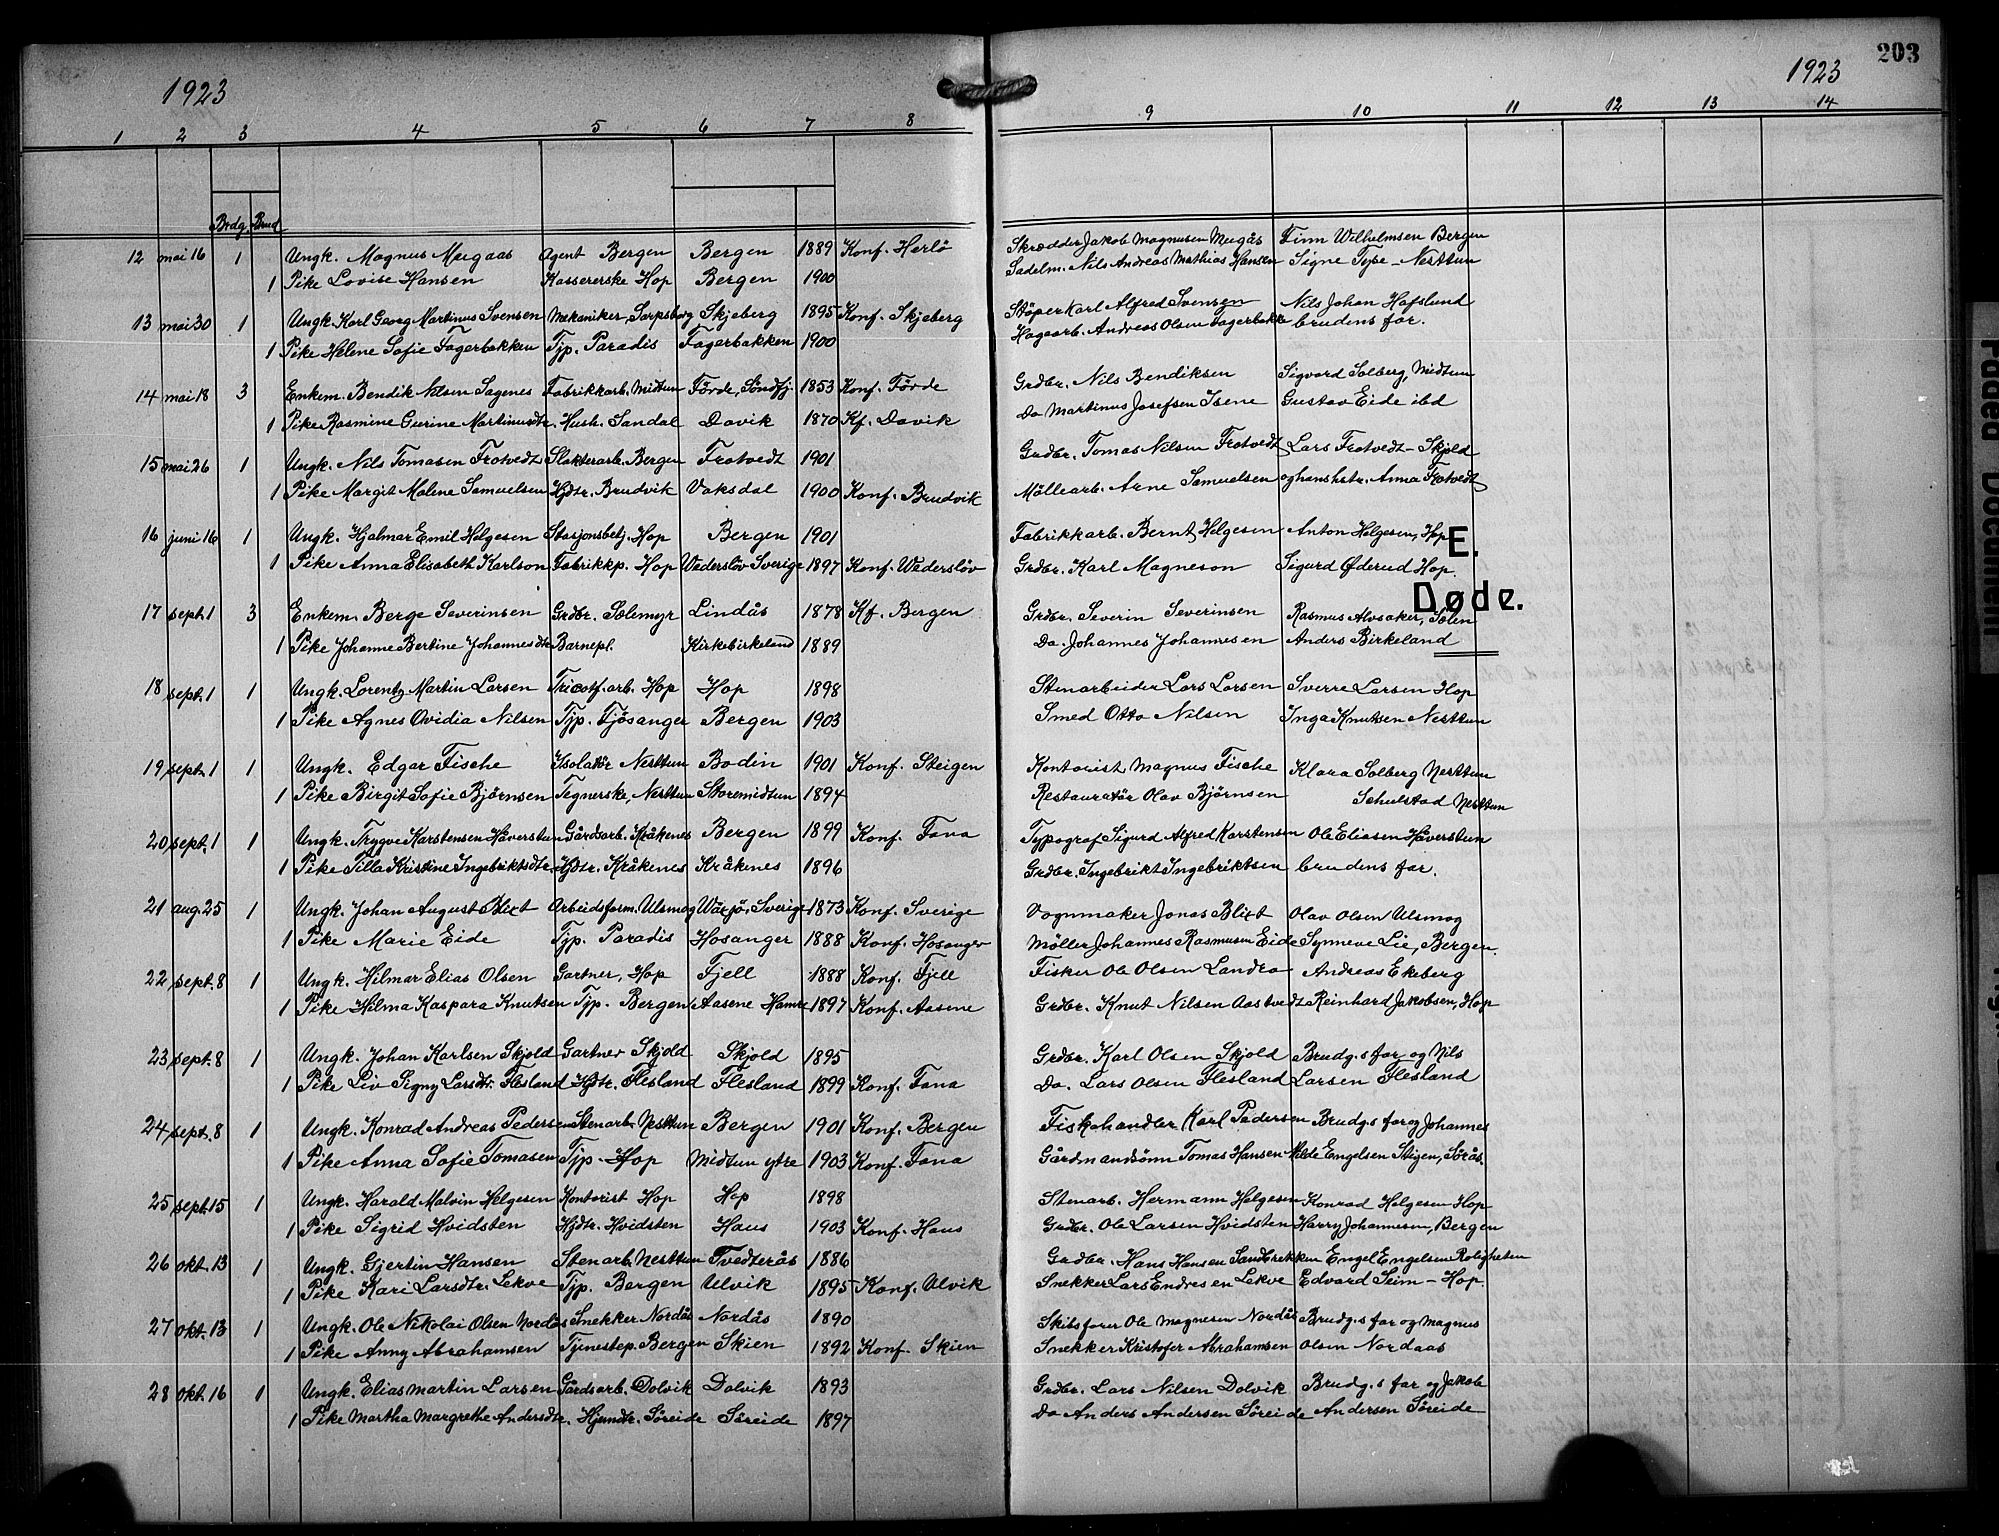 203
1923
1923
1 2 3 4 5 6 7 8 9 10 11 12 13 14
Brdg. Brud
12 mai 16 1 Ungk. Magnus Meigaas Agent Bergen Bergen 1889 Konf. Herlö Skrædder Jakob Magnusen Meigås Finn Wilhelmsen Bergen
1 Pike Lovise Hansen Kassererske Hop Bergen 1900 Sadelm. Nils Andreas Mathias Hansen Signe Type - Nesttun
13 mai 30 1 Ungk. Karl Georg Martinus Svensen Mekaniker, Sarpsborg Skjeberg 1895 Konf. Skjeberg Stöper Karl Alfred Svensen Nils Johan Hafslund
1 Pike Helene Sofie Fagerbakken Tjp. Paradis Fagerbakken 1900 Hagearb. Andreas Olsen Fagerbakke brudens far.
14 mai 18 3 Enkem. Bendik Nilsen Sagenes Fabrikkarb. Midtun Förde, Söndfj. 1853 Konf. Förde Grdbr. Nils Bendiksen Sigvard Solberg, Midtun
1 Pike Rasmine Gurine Martinusdtr. Hush. Sandal Davik 1870 Kf. Davik Do Martinus Josefsen Isene Gustav Eide ibd
15 mai 26 1 Ungk. Nils Tomasen Frotvedt Slakterarb. Bergen Frotvedt 1901 Grdbr. Tomas Nilsen Frotvedt Lars Frotvedt - Skjold
1 Pike Margit Malene Samuelsen Hjdtr. Brudvik Vaksdal 1900 Konf. Brudvik Möllearb. Arne Samuelsen og hans hstr. Anna Frotvedt
16 juni 16 1 Ungk. Hjalmar Emil Helgesen Stasjonsbetj. Hop Bergen 1901 Fabrikkarb. Bernt Helgesen Anton Helgesen, Hop
E.
1 Pike Anna Elisabeth Karlson Fabrikkp. Hop Wederslöv Sverige 1897 Konf. Wederslöv Grdbr. Karl Magneson Sigurd Øderud Hop.
Døde.
17 sept. 1 3 Enkem. Berge Severinsen Grdbr. Solemyr Lindås 1878 Kf. Bergen Grdbr. Severin Severinsen Rasmus Alvsaker, Solen
1 Pike Johanne Bertine Johannesdtr Barnepl. Kirkebirkeland 1889 Do. Johannes Johannesen Anders Birkeland
18 sept. 1 1 Ungk. Lorentz Martin Larsen Tricotf. arb. Hop Hop 1898 Stenarbeider Lars Larsen Sverre Larsen Hop
1 Pike Agnes Ovidia Nilsen Tjp. Fjösanger Bergen 1903 Smed Otto Nilsen Inga Knutsen Nesttun
19 sept. 1 1 Ungk. Edgar Fische Isolatör Nesttun Bodin 1901 Konf. Steigen Kontorist Magnus Fische Klara Solberg Nesttun
1 Pike Birgit Sofie Bjørnsen Tegnerske, Nesttun Storemidtun 1894 Restauratör Olav Bjørnsen Schulstad Nesttun
20 sept. 1 1 Ungk. Trygve Karstensen Håverstun Gårdsarb. Kråkenes Bergen 1899 Konf. Fana Typograf Sigurd Alfred Karstensen Ole Eliasen Håverstun
1 Pike Tilla Kristine Ingebriktsdtr. Hjdtr. Kråkenes Kråkenes 1896 Grdbr. Ingebrikt Ingebriktsen brudens far.
21 aug. 25 1 Ungk. Johan August Blixt Arbeidsform. Ulsmog Wäxjö, Sverige 1873 Konf. Sverige Vognmaker Jonas Blixt Olav Olsen Ulsmog
1 Pike Marie Eide Tjp. Paradis Hosanger 1888 Konf. Hosanger Möller Johannes Rasmusen Eide Synneve Lie, Bergen.
22 sept. 8 1 Ungk. Hilmar Elias Olsen Gartner, Hop Fjell 1888 Konf. Fjell Fisker Ole Olsen Landro Andreas Ekeberg
1 Pike Hilma Kaspara Knutsen Tjp. Bergen Aasene Hamre 1897 Konf. Aasene Grdbr. Knut Nilsen Aastvedt Reinhard Jakobsen, Hop
23 sept. 8 1 Ungk. Johan Karlsen Skjold Gartner Skjold Skjold 1895 Grdbr. Karl Olsen Skjold Brudg.s far og Nils
1 Pike Liv Signy Larsdtr. Flesland Hjdtr. Flesland Flesland 1899 Konf. Fana Do. Lars Olsen Flesland Larsen Flesland
24 sept. 8 1 Ungk. Konrad Andreas Pedersen Stenarb. Nesttun Bergen 1901 Konf. Bergen Fiskehandler Karl Pedersen Brudg.s far og Johannes
1 Pike Anna Sofie Tomasen Tjp. Hop Midtun ytre 1903 Konf. Fana Gårdmandsönn Tomas Hansen Milde Engelsen Stigen, Sörås.
25 sept. 15 1 Ungk. Harald Malvin Helgesen Kontorist Hop Hop 1898 Stenarb. Hermann Helgesen Konrad Helgesen Hop
1 Pike Sigrid Hvidsten Hjdtr. Hvidsten Haus 1903 Konf. Haus Grdbr. Ole Larsen Hvidsten Harry Johannesen, Bergen
26 okt. 13 1 Ungk. Gjertin Hansen Stenarb. Nesttun Tvedterås 1886 Grdbr. Hans Hansen Sandbrekken Engel Engelsen Roligheten
1 Pike Kari Larsdtr. Lekve Tjp. Bergen Ulvik 1895 Konf. Ulvik Snekker Lars Endresen Lekve Edvard Seim - Hop.
27 okt. 13 1 Ungk. Ole Nikolai Olsen Nordås Snekker Nordås Nordås 1890 Skibsförer Ole Magnesen Nordås Brudg.s far og Magnus
1 Pike Anny Abrahamsen Tjenestep. Bergen Skien 1892 Konf. Skien Snekker Kristofer Abrahamsen Olsen Nordaas
28 okt. 16 1 Ungk. Elias Martin Larsen Gårdsarb. Dolvik Dolvik 1893 Grdbr. Lars Nilsen Dolvik Brudg.s far og Jakob
1 Pike Martha Margrethe Andersdtr. Hjemdtr. Søreide Søreide 1897 Do Anders Andersen Søreide Andersen Søreide